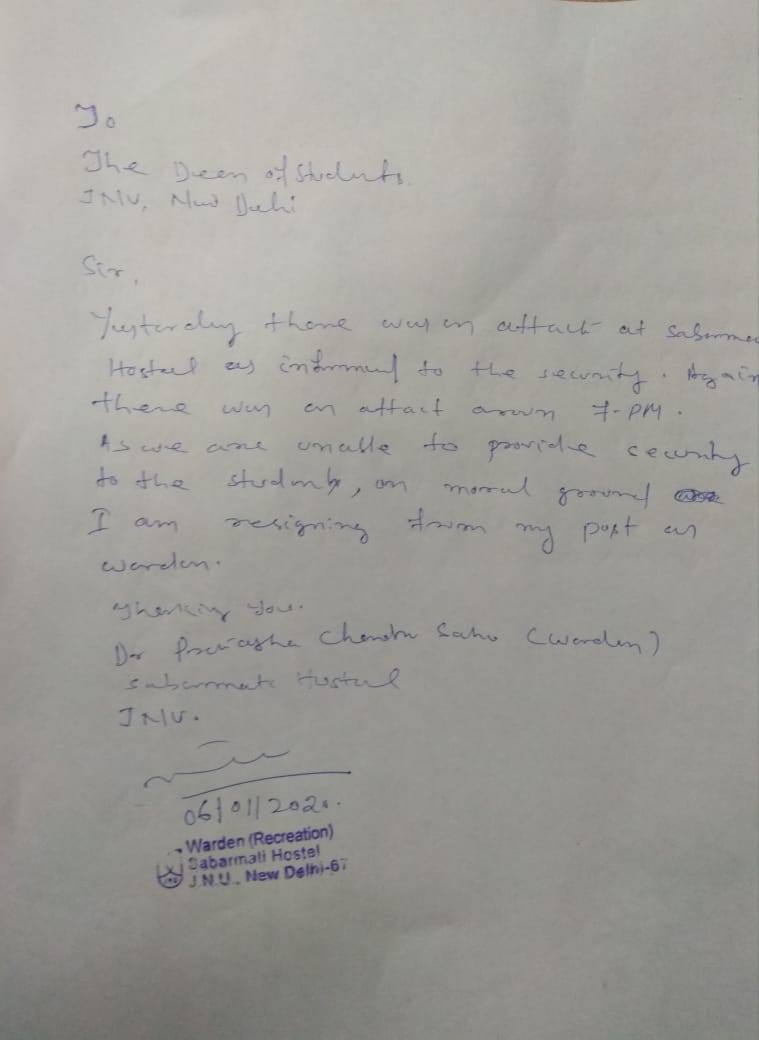 To
The Deen of Students.
JNU, New Delhi
Sir,
Yesterday there was an attack at Sabarmat
Hostel as informed to the security. Again
there was an attack aroun 7-PM.
As we are unable to provide security
to the students, on moral ground
I am resigning from my post as
warden.
Thanking You.
Dr Chandra Sahu (Warden)
Sabarmati Hostel
JNU.
06/01/2020.
Warden (Recreation)
Sabarmati Hostel
J.N.U., New Delhi-67